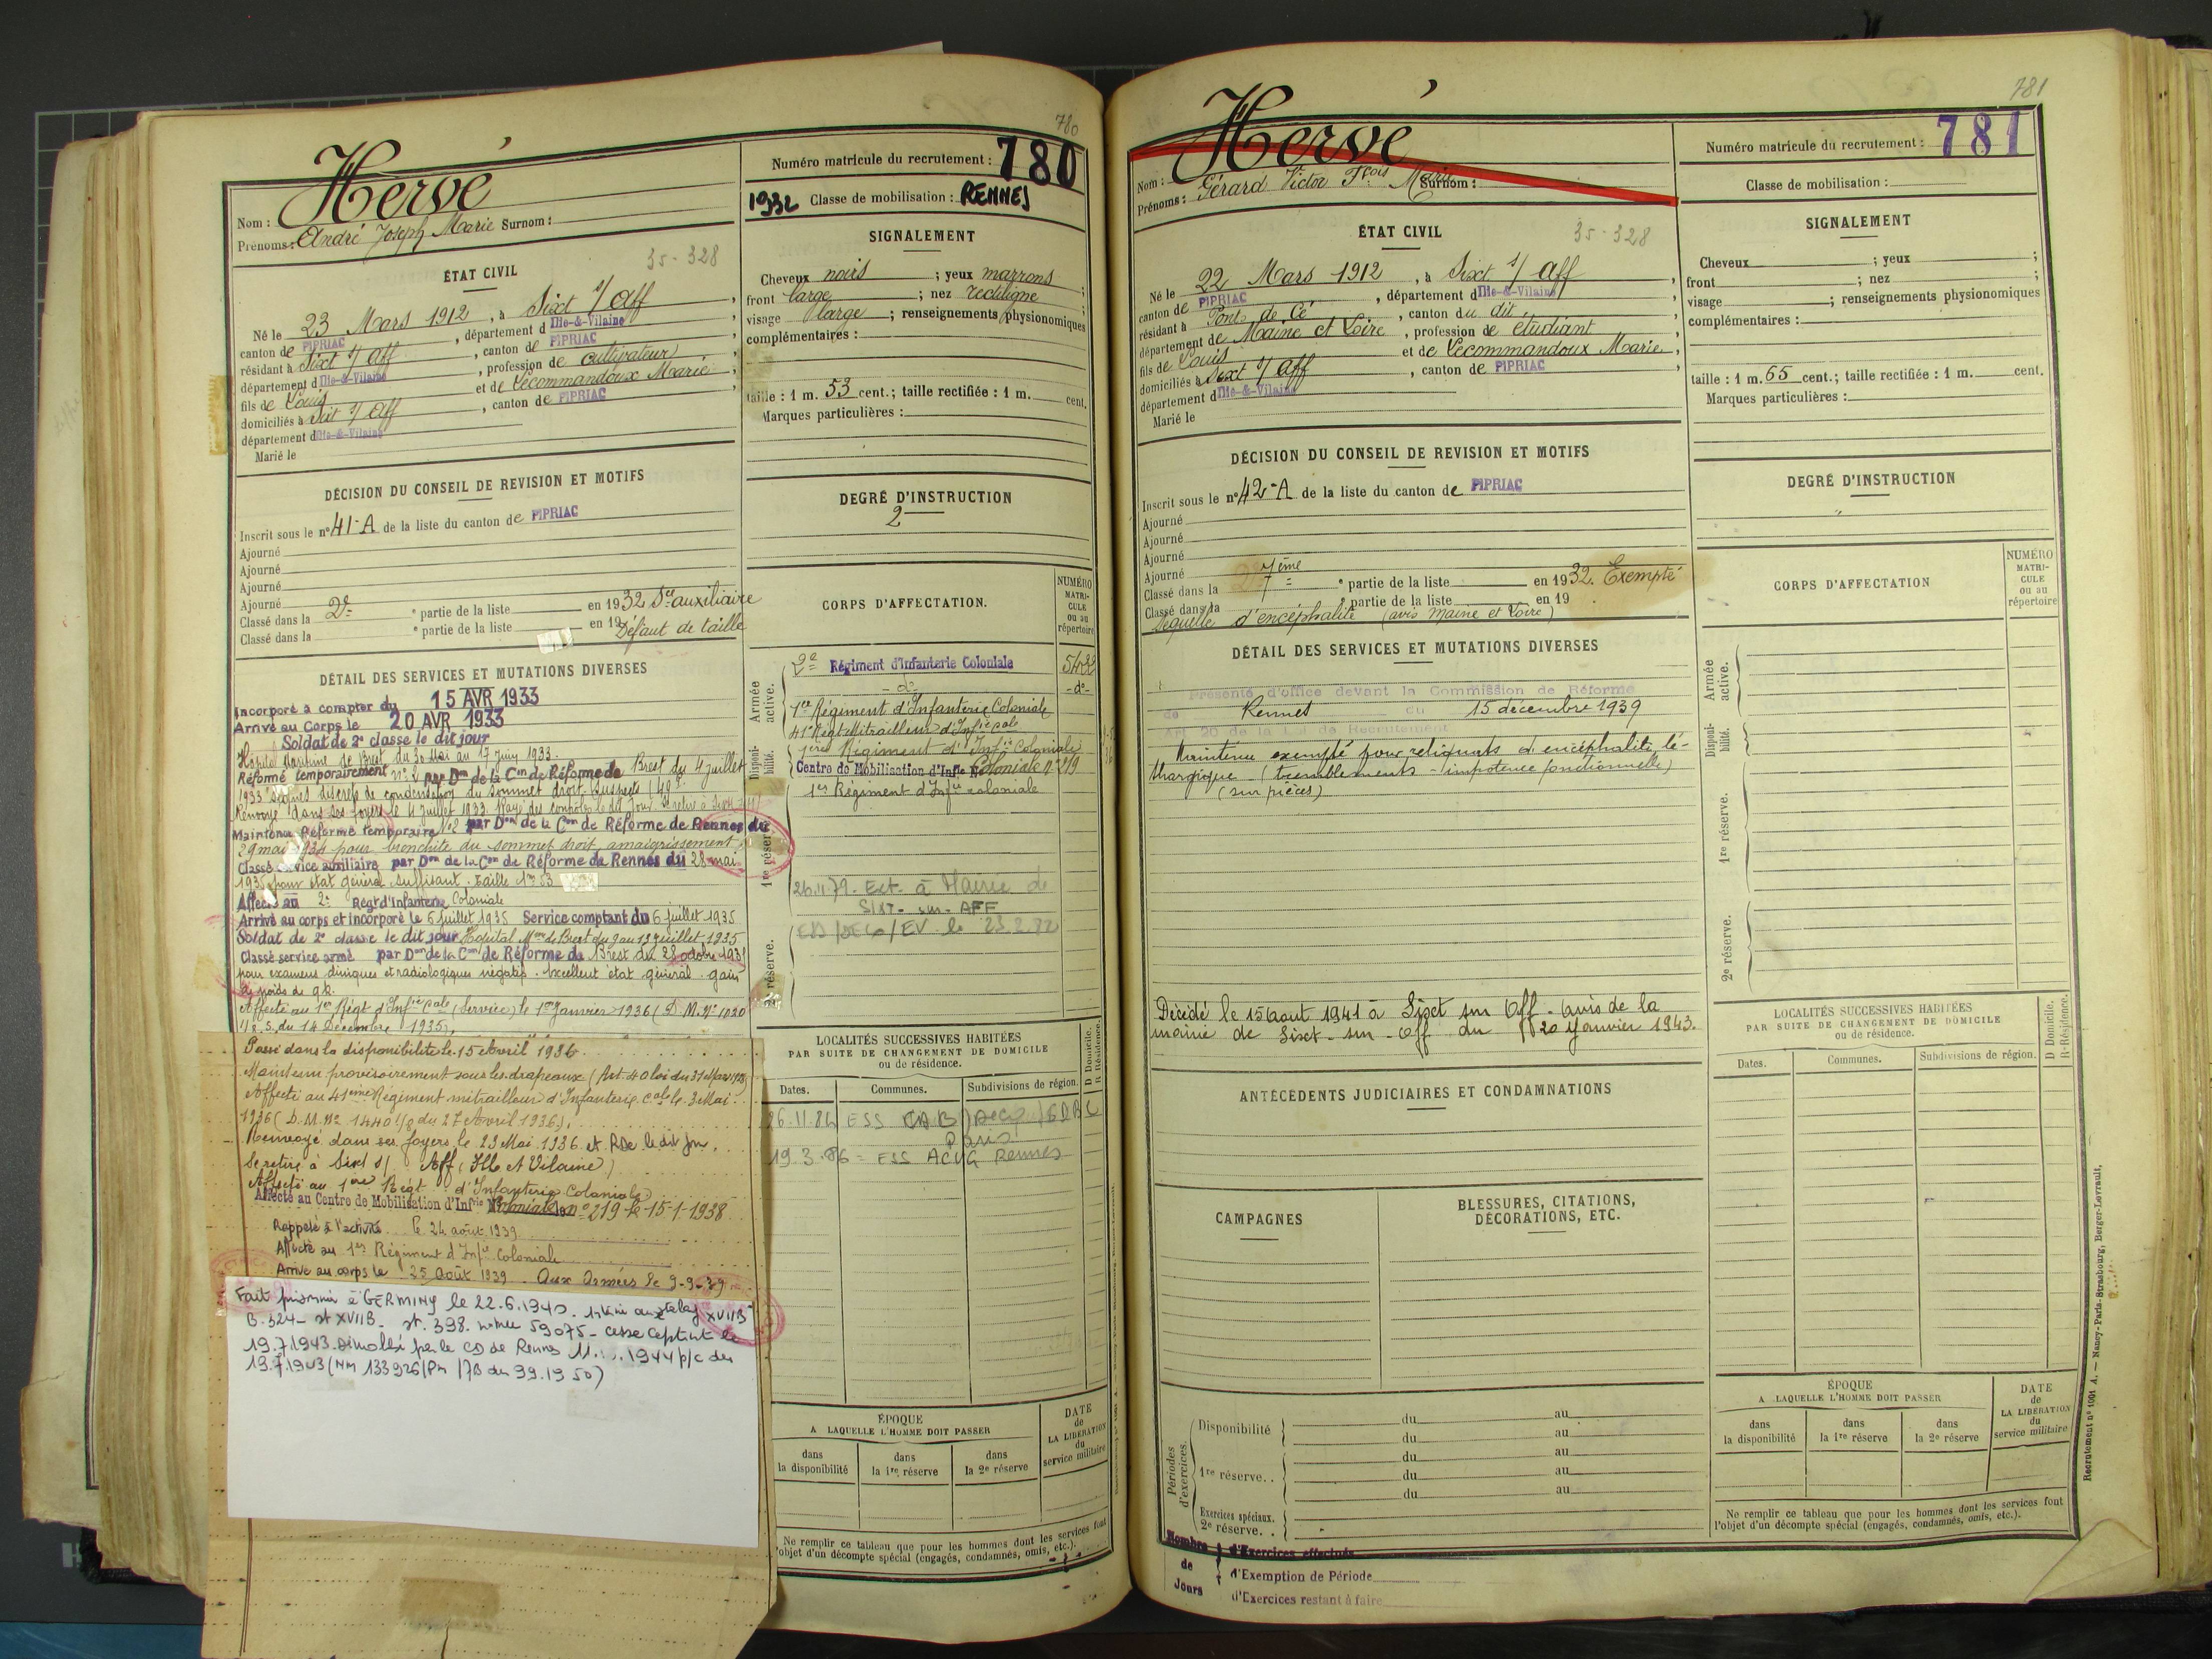 780
Hervé
Nom :
Prénoms : André Joseph Marie Surnom :
ÉTAT CIVIL
35-328
Né le 23 Mars 1912, à Sixt s/ Aff,
canton de PIPRIAC, département d'Ille-&-Vilaine,
résidant à Sixt s/ Aff, canton de PIPRIAC,
département d'Ille-&-Vilaine, profession de cultivateur,
fils de Louis et de Lecommandoux Marie,
domiciliés à Sixt s/ Aff, canton de PIPRIAC,
département d'Ille-&-Vilaine
Marié le
DÉCISION DU CONSEIL DE REVISION ET MOTIFS
Inscrit sous le n° 41-A de la liste du canton de PIPRIAC
Ajourné
Ajourné
Ajourné
Ajourné
Classé dans la 2e partie de la liste en 1932 Sce auxiliaire
Classé dans la e partie de la liste en 19 Défaut de taille
DÉTAIL DES SERVICES ET MUTATIONS DIVERSES
Incorporé à compter du 15 AVR 1933
Arrivé au Corps le 20 AVR 1933
Soldat de 2e classe le dit jour
Hôpital Maritime de Brest du 30 Mai au 17 Juin 1933.
Réformé temporairement n° 2 par Don de la Con de Réforme de Brest du 4 juillet
1933 signes discrets de condensation du sommet droit.
Renvoyé dans ses foyers le 4 Juillet 1933. Rayé des contrôles le dit jour se retire à
Maintenu Réformé temporaire N°2 par Don de la Con de Réforme de Rennes du
29 mai 1934 pour bronchite du sommet droit, amaigrissement.
Classé service auxiliaire par Don de la Con de Réforme de Rennes du 28 mai
1935 pour état général suffisant. Taille 1m 53
Affecté au 2e Régt d'Infanterie Coloniale
Arrivé au corps et incorporé le 6 juillet 1935 Service comptant du 6 juillet 1935
Soldat de 2e classe le dit jour Hôpital Mme de Brest du 9 au 19 juillet 1935
Classé service armé par Don de la Con de Réforme de Brest du 28 octobre 1935
pour examens cliniques et radiologiques négatifs. Excellent état général. gain
de poids de 9k.
Affecté au 1er Régt d'Infie Cale (Service) le 1er Janvier 1936 (D.M. N° 1020
1/8 S. du 14 Décembre 1935).
Passé dans la disponibilité le 15 Avril 1936
Maintenu provisoirement sous les drapeaux (Art. 40 loi du 31 Mars 1928)
Affecté au 41ème Régiment mitrailleur d'Infanterie Cale le 3 Mai
1936 (D.M. N° 1440 1/8 du 27 Avril 1936).
Renvoyé dans ses foyers le 23 Mai 1936 et RDC le dit jour.
Se retire à Sixt s/ Aff (Ille et Vilaine)
Affecté au 1er Régt d'Infanterie Coloniale
Affecté au Centre de Mobilisation d'Infie Coloniale n° 219 le 15-1-1938
Rappelé à l'activité le 24 août 1939
Affecté au 1er Régiment d'Infie Coloniale
Arrivé au corps le 25 Août 1939. Aux Armées le 9-9-39
Fait prisonnier à GERMINY le 22.6.1940. Interné au stalag XVIIB
B.324 - st XVIIB - st. 398. n° mle 59075 - cesse captivité le
19.7.1943. Démobilisé par le CD de Rennes 11. 1944 p/c du
19.7.1943 (NM 133926/Pm/7B du 1950)
Numéro matricule du recrutement : 780
1932 Classe de mobilisation : RENNES
SIGNALEMENT
Cheveux noirs ; yeux marrons ;
front large ; nez rectiligne ;
visage large ; renseignements physionomiques
complémentaires :
taille : 1 m. 53 cent. ; taille rectifiée : 1 m. cent.
Marques particulières :
DEGRÉ D'INSTRUCTION
2
CORPS D'AFFECTATION.
NUMÉRO MATRI-CULE ou au répertoire
Armée active.
2e Régiment d'Infanterie Coloniale
- d° - - d° -
1er Régiment d'Infanterie Coloniale
41e Régt Mitrailleur d'Infie Cale
Disponi-bilité.
1er Régiment d'Infie Coloniale
Centre de Mobilisation d'Infie Coloniale n° 219
1er Régiment d'Infie coloniale
1re réserve.
26.11.79. Ext. à Mairie de
SIXT - sur - AFF
2e réserve.
LOCALITÉS SUCCESSIVES HABITÉES
PAR SUITE DE CHANGEMENT DE DOMICILE
ou de résidence.
Dates. Communes. Subdivisions de région. D Domicile. R Résidence.
26.11.84 ESS
Paris
19.3.86 = ESS ACVG Rennes
ÉPOQUE
A LAQUELLE L'HOMME DOIT PASSER
dans la disponibilité dans la 1re réserve dans la 2e réserve
DATE de LA LIBÉRATION du service militaire
Ne remplir ce tableau que pour les hommes dont les services font
l'objet d'un décompte spécial (engagés, condamnés, omis, etc.).
781
Hervé
Nom :
Prénoms : Gérard Victor Fçois Marie Surnom :
ÉTAT CIVIL
35-328
Né le 22 Mars 1912, à Sixt s/ Aff,
canton de PIPRIAC, département d'Ille-&-Vilaine,
résidant à Ponts de Cé, canton du dit,
département de Maine et Loire, profession de étudiant
fils de Louis et de Lecommandoux Marie,
domiciliés à Sixt s/ Aff, canton de PIPRIAC,
département d'Ille-&-Vilaine
Marié le
DÉCISION DU CONSEIL DE REVISION ET MOTIFS
Inscrit sous le n° 42-A de la liste du canton de PIPRIAC
Ajourné
Ajourné
Ajourné
Ajourné
Classé dans la 7ème partie de la liste en 1932. Exempté
Classé dans la e partie de la liste en 19
Séquelle d'encéphalite (avis Maine et Loire)
DÉTAIL DES SERVICES ET MUTATIONS DIVERSES
Présenté d'office devant la Commission de Réforme
de Rennes du 15 décembre 1939
Art 20 de la Loi de Recrutement
Maintenu exempté pour reliquats d'encéphalite lé-
thargique (tremblements - impotence fonctionnelle)
(sur pièces)
Décédé le 15 août 1941 à Sixt sur Aff - avis de la
mairie de Sixt - sur - Aff du 20 Janvier 1943.
ANTÉCÉDENTS JUDICIAIRES ET CONDAMNATIONS
CAMPAGNES
BLESSURES, CITATIONS,
DÉCORATIONS, ETC.
Périodes d'exercices.
Disponibilité du au
du au
du au
1re réserve.. du au
du au
Exercices spéciaux.
2e réserve. .
Nombre de Jours
d'Exercices effectués
d'Exemption de Période
d'Exercices restant à faire
Numéro matricule du recrutement : 781
Classe de mobilisation :
SIGNALEMENT
Cheveux ; yeux ;
front ; nez ;
visage ; renseignements physionomiques
complémentaires :
taille : 1 m. 65 cent. ; taille rectifiée : 1 m. cent.
Marques particulières :
DEGRÉ D'INSTRUCTION
CORPS D'AFFECTATION
NUMÉRO MATRI-CULE ou au répertoire
Armée active.
Disponi-bilité.
1re réserve.
2e réserve.
LOCALITÉS SUCCESSIVES HABITÉES
PAR SUITE DE CHANGEMENT DE DOMICILE
ou de résidence.
Dates. Communes. Subdivisions de région. D Domicile. R-Résidence.
ÉPOQUE
A LAQUELLE L'HOMME DOIT PASSER
dans la disponibilité dans la 1re réserve dans la 2e réserve
DATE de LA LIBÉRATION du service militaire
Ne remplir ce tableau que pour les hommes dont les services font
l'objet d'un décompte spécial (engagés, condamnés, omis, etc.).
Recrutement n° 1001 A. — Nancy-Paris-Strasbourg, Berger-Levrault.